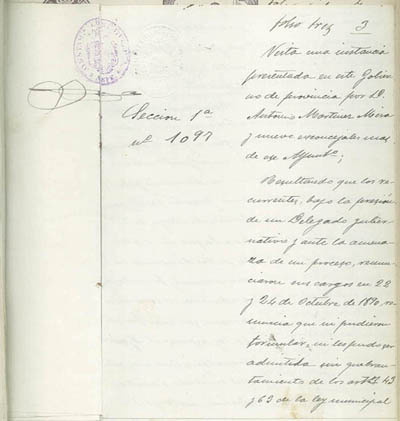 folio tres 3
Sección 1ª
nº 1097
Vista una instancia
presentada en este Gobier
no de provincia por D.
Antonio Martinez Mira
y nueve exconcejales mas
de ese Ayuntº;
Resultando que los re-
currentes, bajo la presion
de un Delegado guber-
nativo y ante la amena
za de un proceso, renun-
ciaron sus cargos en 22
y 24 de Octubre de 1890, re
nuncia que ni pudieron
formular, ni les pudo ser
admitida sin quebran-
tamiento de los artos 43
y 63 de la ley municipal